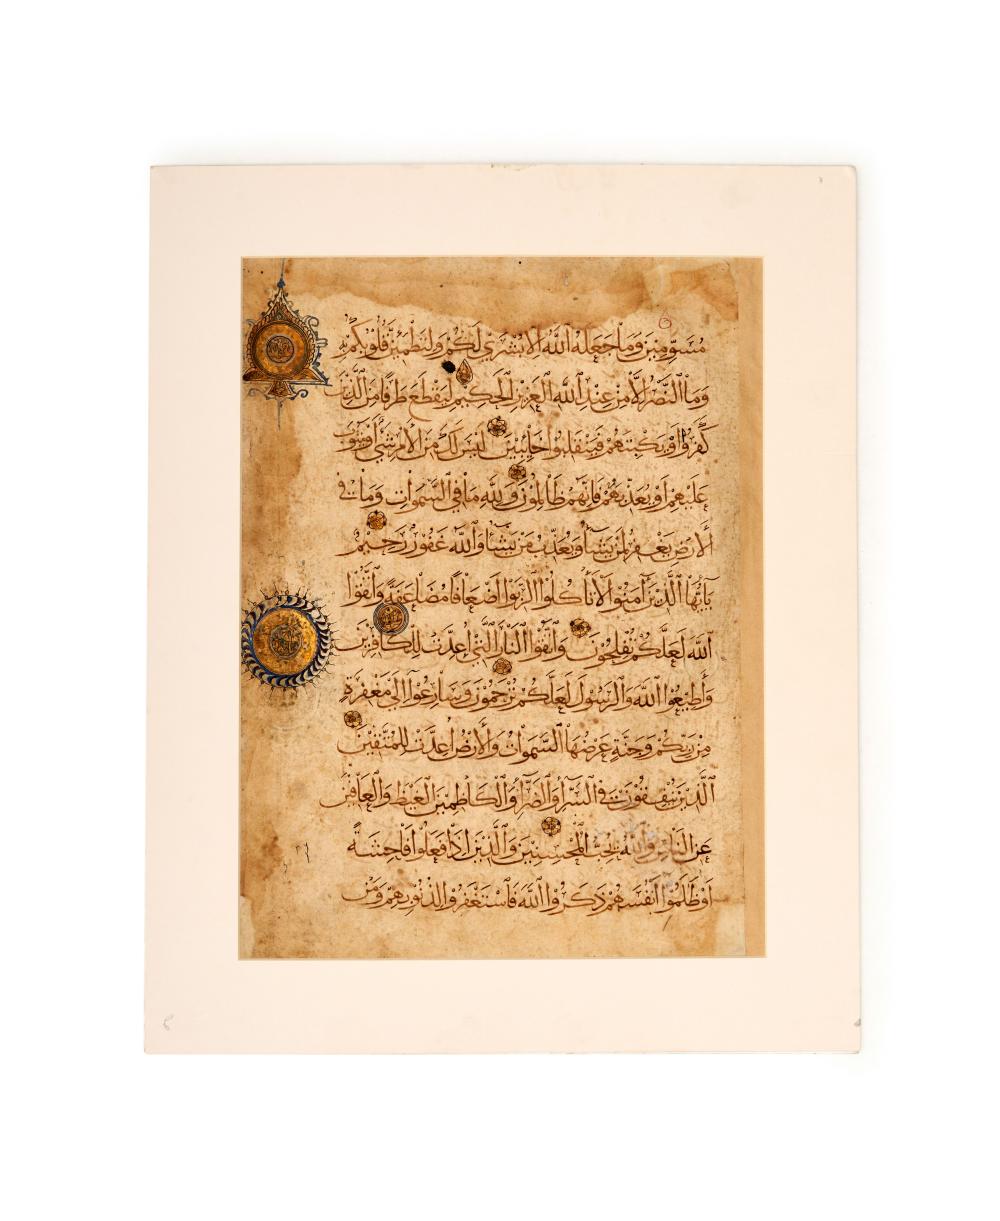 مُسَوِّمِينَ وَمَا جَعَلَهُ ٱللَّهُ إِلَّا بُشْرَىٰ لَكُمْ وَلِتَطْمَئِنَّ قُلُوبُكُمْ بِهِ
وَمَا ٱلنَّصْرُ إِلَّا مِنْ عِنْدِ ٱللَّهِ ٱلْعَزِيزِ ٱلْحَكِيمِ لِيَقْطَعَ طَرَفًا مِنَ ٱلَّذِينَ
كَفَرُوا أَوْ يَكْبِتَهُمْ فَيَنْقَلِبُوا خَائِبِينَ لَيْسَ لَكَ مِنَ ٱلْأَمْرِ شَيْءٌ أَوْ يَتُوبَ
عَلَيْهِمْ أَوْ يُعَذِّبَهُمْ فَإِنَّهُمْ ظَالِمُونَ وَلِلَّهِ مَا فِي ٱلسَّمَوَاتِ وَمَا فِي
ٱلْأَرْضِ يَغْفِرُ لِمَنْ يَشَاءُ وَيُعَذِّبُ مَنْ يَشَاءُ وَٱللَّهُ غَفُورٌ رَحِيمٌ
يَاأَيُّهَا ٱلَّذِينَ آمَنُوا لَا تَأْكُلُوا ٱلرِّبَوٰا أَضْعَافًا مُضَاعَفَةً وَٱتَّقُوا
ٱللَّهَ لَعَلَّكُمْ تُفْلِحُونَ وَٱتَّقُوا ٱلنَّارَ ٱلَّتِي أُعِدَّتْ لِلْكَافِرِينَ
وَأَطِيعُوا ٱللَّهَ وَٱلرَّسُولَ لَعَلَّكُمْ تُرْحَمُونَ وَسَارِعُوا إِلَىٰ مَغْفِرَةٍ
مِنْ رَبِّكُمْ وَجَنَّةٍ عَرْضُهَا ٱلسَّمَوَاتُ وَٱلْأَرْضُ أُعِدَّتْ لِلْمُتَّقِينَ
ٱلَّذِينَ يُنْفِقُونَ فِي ٱلسَّرَّاءِ وَٱلضَّرَّاءِ وَٱلْكَاظِمِينَ ٱلْغَيْظَ وَٱلْعَافِينَ
عَنِ ٱلنَّاسِ وَٱللَّهُ يُحِبُّ ٱلْمُحْسِنِينَ وَٱلَّذِينَ إِذَا فَعَلُوا فَاحِشَةً
أَوْ ظَلَمُوا أَنْفُسَهُمْ ذَكَرُوا ٱللَّهَ فَٱسْتَغْفَرُوا لِذُنُوبِهِمْ وَمَنْ